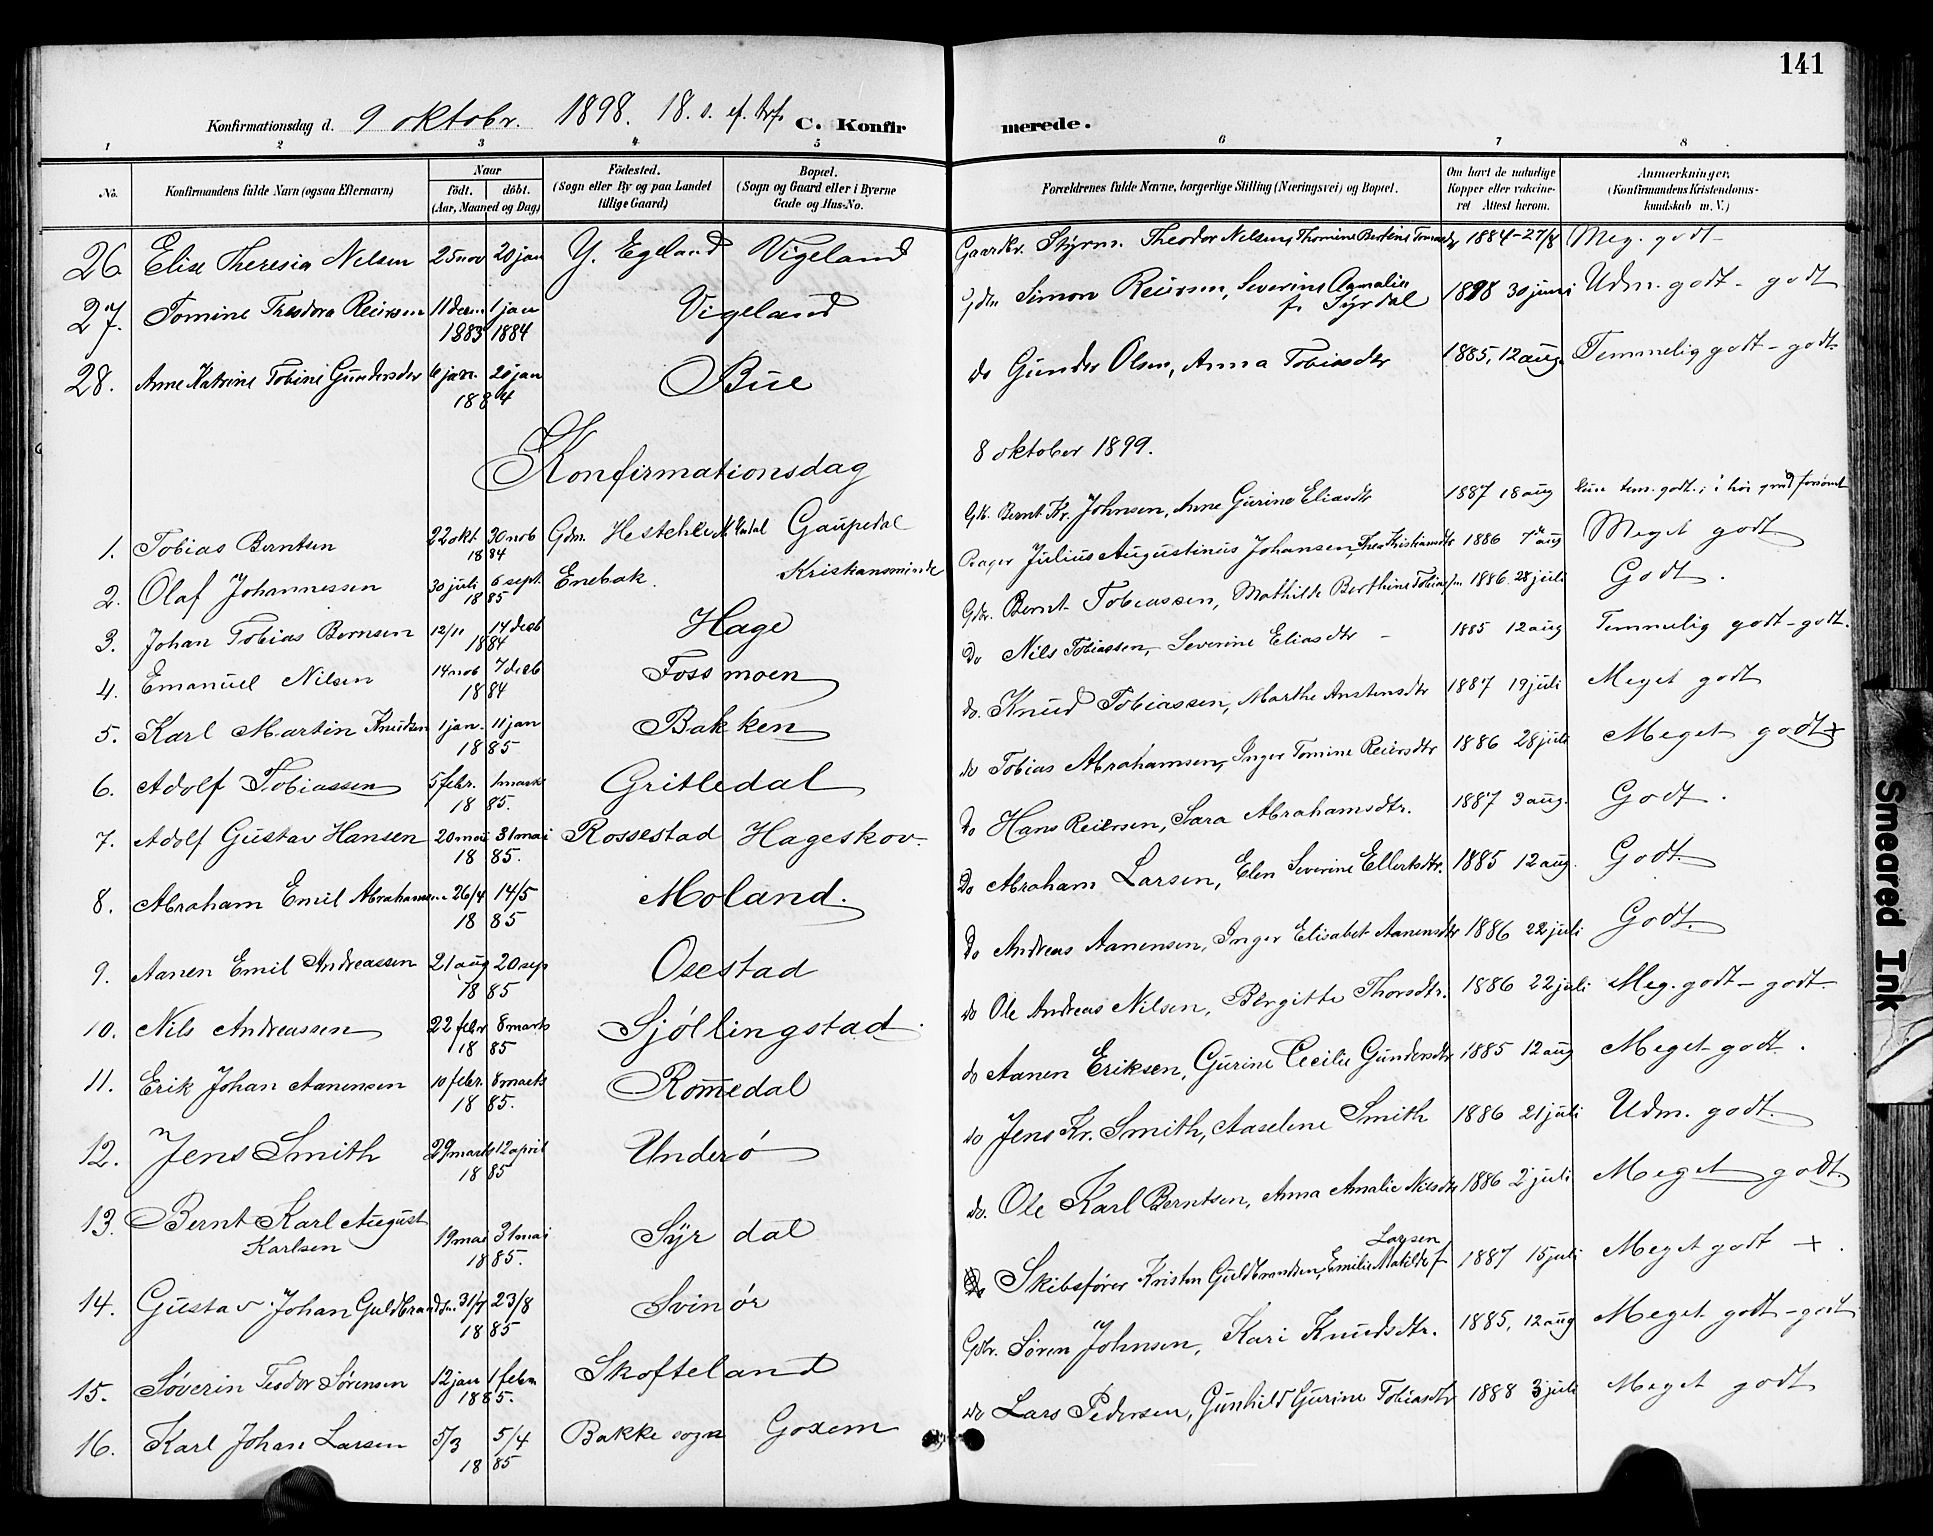 141
Konfirmationsdag d. 9 oktobr. 1898. 18. s. ef. Trf. C. Konfirmerede.
1 2 3 4 5 6 7 8
No. Konfirmandens fulde Navn (ogsaa Efternavn) Naar født. døbt. (Aar, Maaned og Dag) Födested. (Sogn eller By og paa Landet tillige Gaard) Bopæl. (Sogn og Gaard eller i Byerne Gade og Hus-No. Forældrenes fulde Navne, borgerlige Stilling (Næringsvei) og Bopæl. Om havt de naturlige Kopper eller vakcineret Attest herom. Anmærkninger. (Konfirmandens Kristendomskundskab m. V.)
26. Elise Theresia Nelsen 25 nov 20 jan Y. Egeland Vigeland Gaardbr. Styrm. Theodor Nelsen, Thomine Bertine 1884-27/8 Meg. godt
27. Tomine Theodora Reiersen 11 decm 1883 1 jan 1884 Vigeland Simon Reiersen, Severine Amalie f. Syrdal 1898 30 juni Udm. godt - godt
28. Anne Katrine Tobine Gundersdtr 6 jan. 20 jan 1884 Bue do Gunder Olsen, Anna Tobiasdtr 1885, 12 aug. Temmelig godt - godt
Konfirmationsdag 8 oktober 1899.
1. Tobias Berntsen 22 okt 30 nob 1884 Gdm. Gaupedal Gb. Bernt Kr. Johnsen, Anne Gurine Eliasdtr 1887 18 aug kun tem. godt.; i høi grad forsømt
2. Olaf Johannessen 30 juli 6 sept. 1885 Enebak. Kristiansminde Bager Julius Augustinus Johansen, Thea Kristiansdtr 1886 7de aug Meget godt
3. Johan Tobias Bernsen 12/11 14 decb 1884 Hage Gdbr. Bernt Tobiassen, Mathilde Berthine 1886. 28 juli Godt.
4. Emanuel Nilsen 14 nob 7 decb 1884 Fossmoen Do Nils Tobiassen, Severine Eliasdtr - 1885 12 aug Temmelig godt - godt.
5. Karl Martin Knudsen 1 jan. 11 jan 1885 Bakken do. Knud Tobiassen, Marthe Anstensdtr 1887 19 juli Meget godt
6. Adolf Tobiassen 5 febr. 1 marts 1885. Gritledal do Tobias Abrahamsen, Inger Tomine Reiersdtr 1886 28 juli Meget godt +
7. Adolf Gustav Hansen 20 mai 31 mai 1885. Rossestad Hageskov do Hans Reiersen, Sara Abrahamsdtr. 1887 3 aug. Godt.
8. Abraham Emil Abrahamsen 26/4 14/5 1885 Moland. Do Abraham Larsen, Elen Severine Ellertsdtr. 1885 12 aug. Godt.
9. Aanen Emil Andreassen 21 aug 20 sep 1885 Osestad Do Andreas Aanensen, Inger Elisabet Aanensdtr 1886 22 juli Godt.
10. Nils Andreassen 22 febr 8 marts 1885 Sjöllingstad. do Ole Andreas Nilsen, Bergitte Thorsdtr. 1886 22 juli Meg. godt - godt.
11. Erik Johan Aanensen 10 febr. 8 marts 1885. Romedal do Aanen Eriksen, Gurine Cecilie Gundersdtr 1885 12 aug Meget godt.
12. Jens Smith 29 marts 12 april 1885 Underö do Jens Kr. Smith, Aaselene Smith 1886 21 juli Udm. godt.
13. Bernt Karl August Karlsen 19 mai 31 mai 1885. Syrdal do. Ole Karl Berntsen, Anna Amalie Nilsdtr 1886 2 juli Meget godt.
14. Gustav Johan Guldbrandsn. 31/7 23/8 1885 Svinör Skibsfører Kristen Guldbrandsen, Emilie Matilde f. Larsen 1887 15 juli Meget godt +.
15. Söverin Teodor Sörensen 12 jan 1 febr 1885. Skofteland Gdbr. Sören Johnsen, Kari Knudsdtr. 1885, 12 aug Meget godt - godt
16. Karl Johan Larsen 5/3 5/4 1885 Bakke sogn Goxem do Lars Pedersen, Gunhild Gurine Tobiasdtr 1888 3 juli Meget godt
Smeared Ink